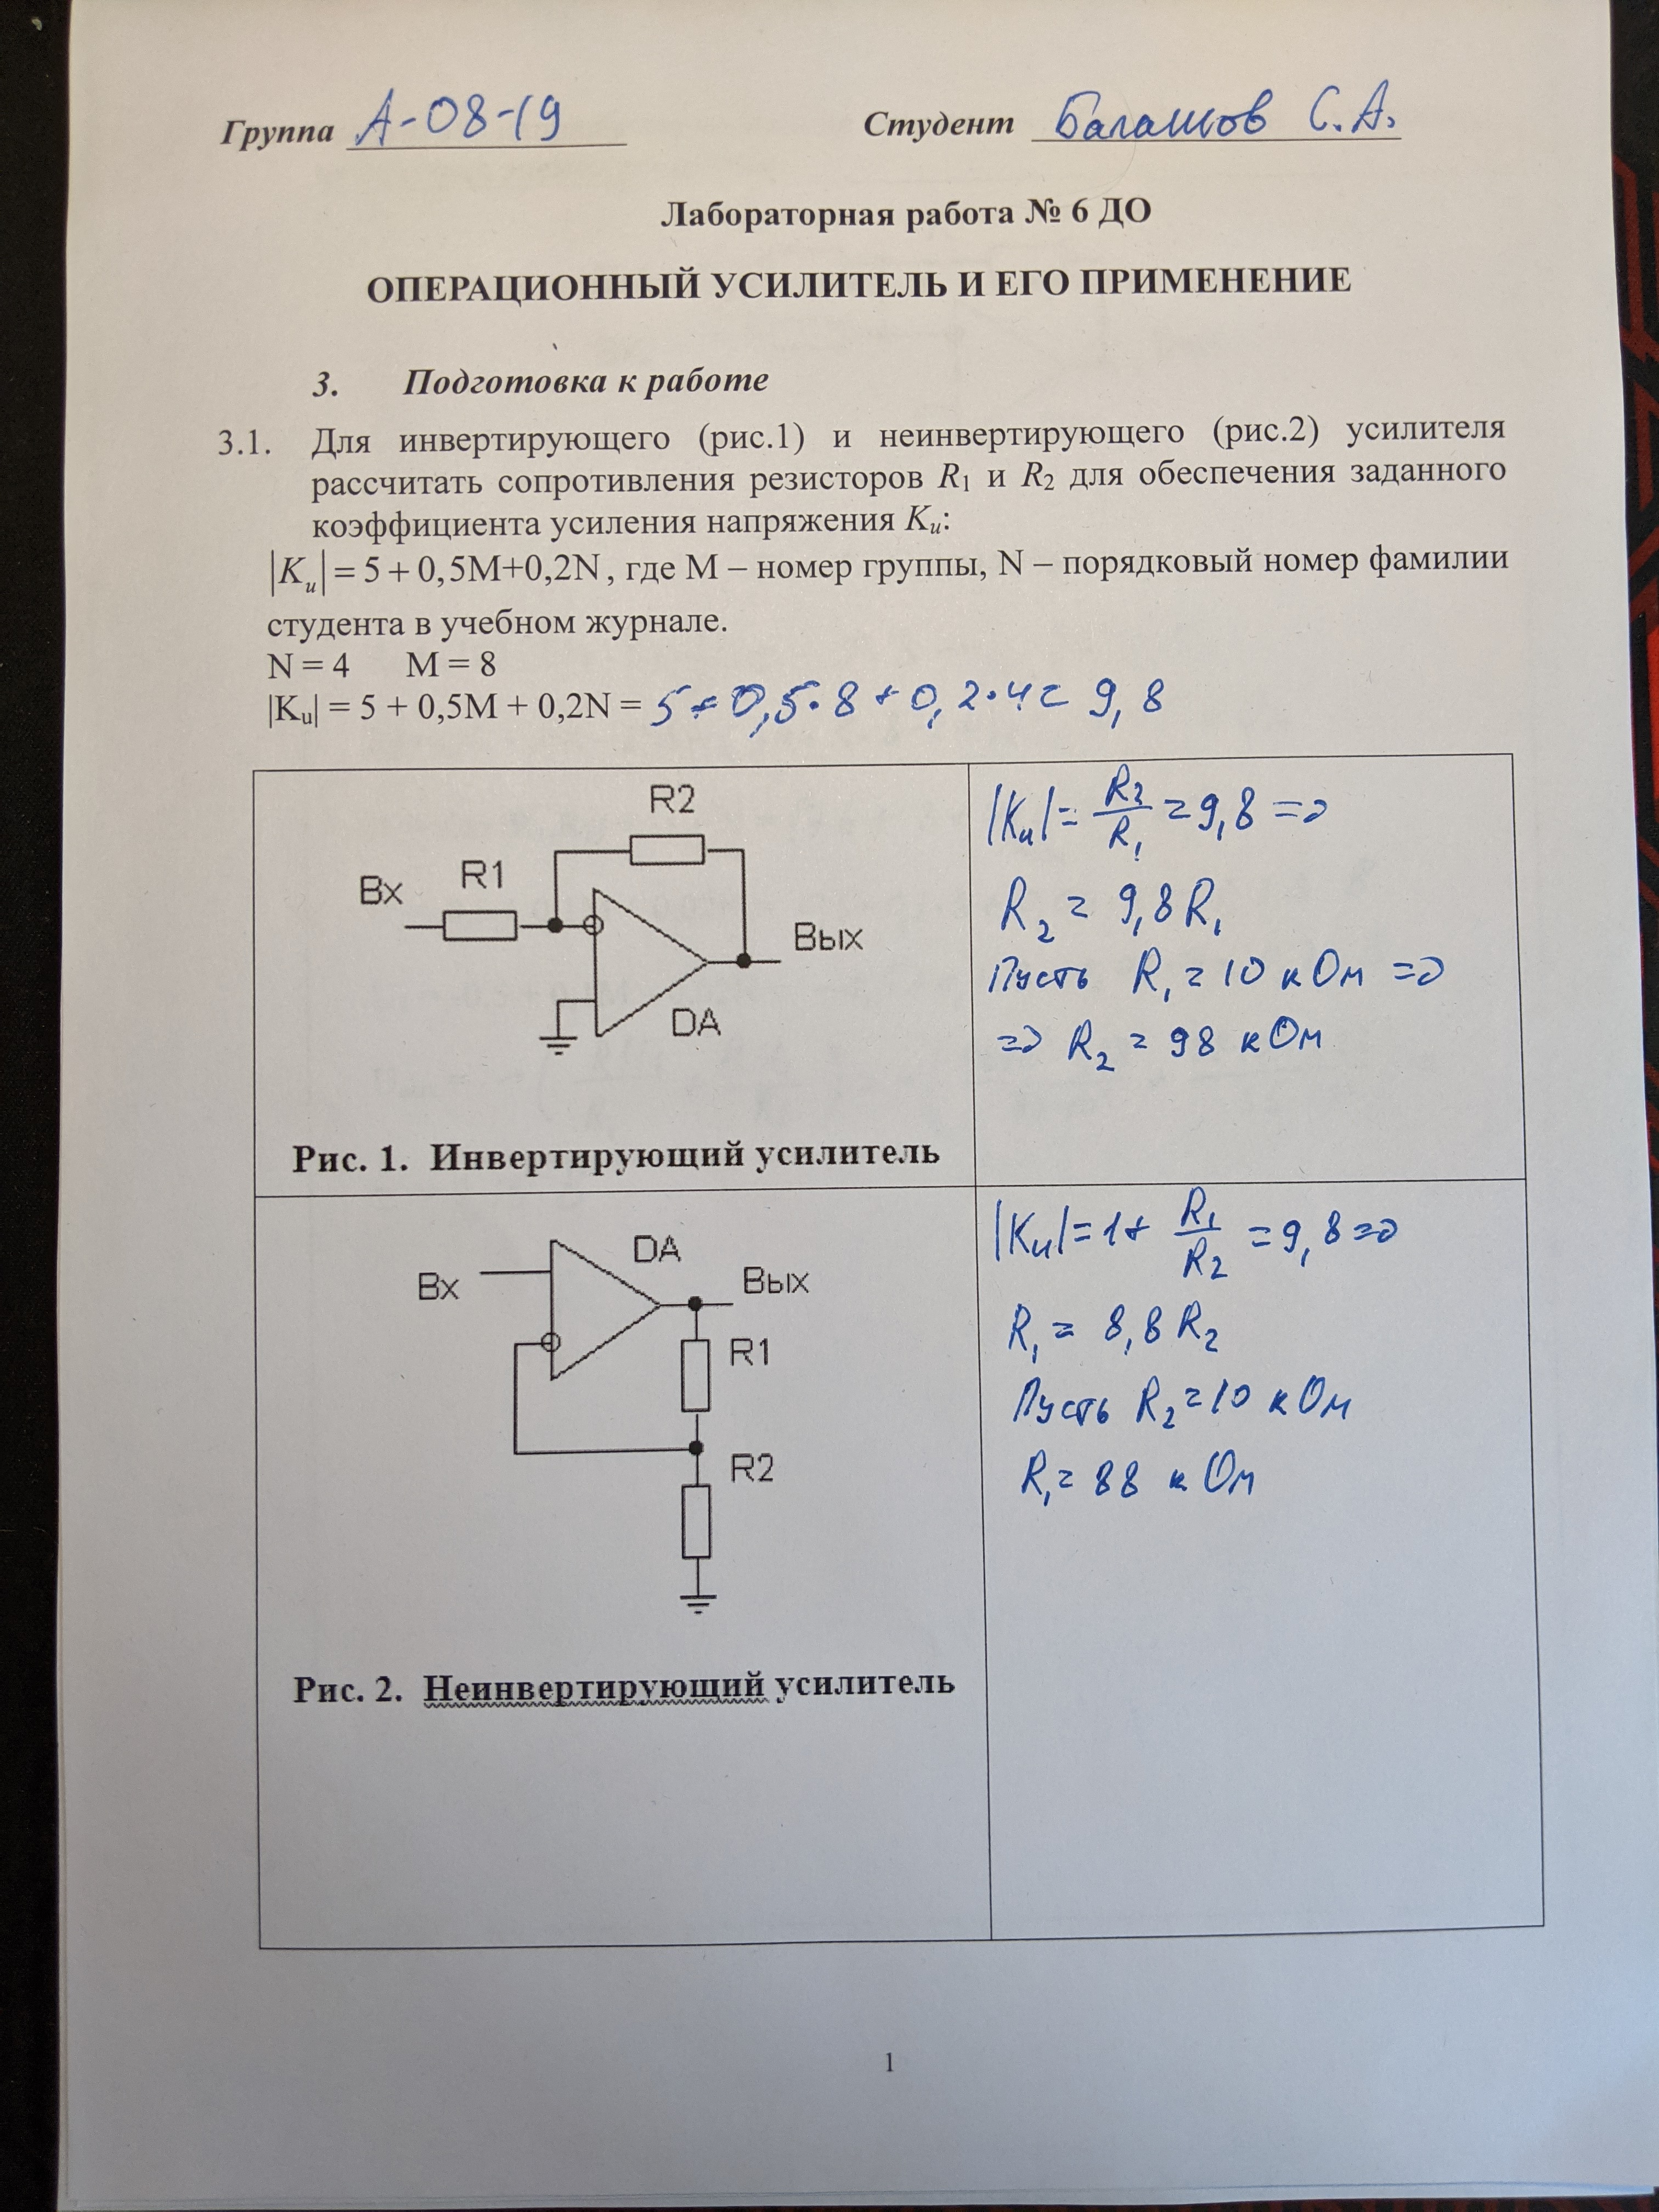 Группа А-08-19 Студент Балашов С.А.
Лабораторная работа № 6 ДО
ОПЕРАЦИОННЫЙ УСИЛИТЕЛЬ И ЕГО ПРИМЕНЕНИЕ
3. Подготовка к работе
3.1. Для инвертирующего (рис.1) и неинвертирующего (рис.2) усилителя
рассчитать сопротивления резисторов R₁ и R₂ для обеспечения заданного
коэффициента усиления напряжения Kᵤ:
|Kᵤ| = 5 + 0,5M+0,2N, где M – номер группы, N – порядковый номер фамилии
студента в учебном журнале.
N = 4 M = 8
|Kᵤ| = 5 + 0,5M + 0,2N = 5+0,5·8+0,2·4= 9,8
R2
R1
Вх
Вых
DA
Рис. 1. Инвертирующий усилитель
|Kᵤ|= R₂/R₁ = 9,8 =>
R₂ = 9,8 R₁
Пусть R₁ = 10 кОм =>
=> R₂ = 98 кОм
DA
Вх
Вых
R1
R2
Рис. 2. Неинвертирующий усилитель
|Kᵤ|= 1+ R₁/R₂ = 9,8 =>
R₁ = 8,8 R₂
Пусть R₂ = 10 кОм
R₁ = 88 кОм
1